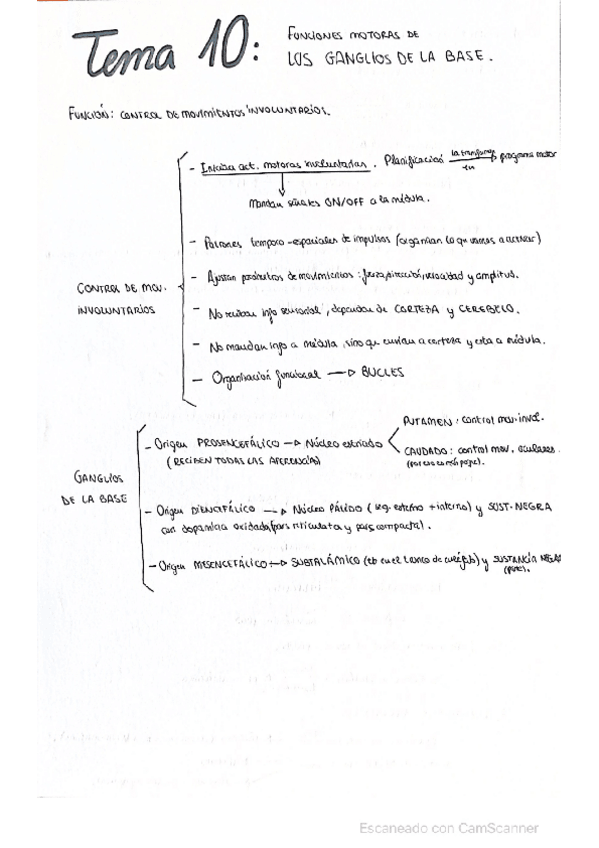 Tema 10: FUNCIONES MOTORAS DE
LOS GANGLIOS DE LA BASE.
FUNCIÓN: CONTROL DE MOVIMIENTOS INVOLUNTARIOS.
CONTROL DE MOV.
INVOLUNTARIOS
- act. motoras involuntarias. Planificación la transforma programa motor
en
Mandan señales ON/OFF a la médula.
- Patrones temporo-espaciales de impulsos (organizan lo que vamos a activar)
- Ajustan parámetros de movimientos: fuerza, dirección, velocidad y amplitud.
- No reciben info sensorial, dependen de CORTEZA y CEREBELO.
- No mandan info a médula, sino que envían a corteza y esta a médula.
- Organización funcional → BUCLES
GANGLIOS
DE LA BASE
- Origen PROSENCEFÁLICO → Núcleo estriado
(RECIBEN TODAS LAS AFERENCIAS)
PUTAMEN: control mov. invol.
CAUDADO: control mov. oculares.
- Origen DIENCEFÁLICO → NÚCLEO PÁLIDO (seg. externo + interno) y SUST. NEGRA
con dopamina oxidada (pars reticulata y pars compacta).
- Origen MESENCEFÁLICO → SUBTALÁMICO y SUSTANCIA NEGRA
Escaneado con CamScanner